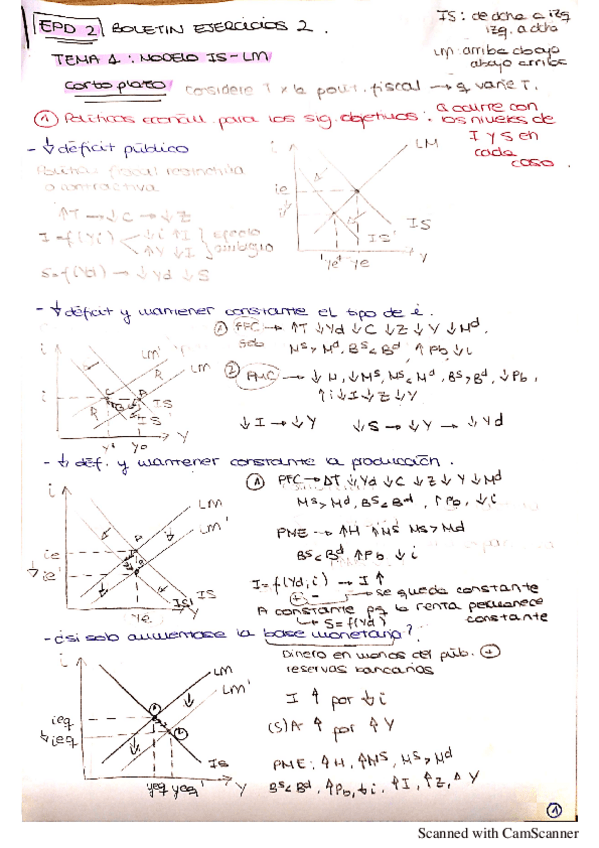 EPD 2 BOLETIN EJERCICIOS 2.
IS: de dcha a izq
izq. a dcha
LM: arriba abajo
abajo arriba
TEMA 1: MODELO IS-LM
corto plazo considere T x la polit. fiscal → q varíe T.
① Políticas económ. para los sig. objetivos: a ocurre con
los niveles de
I y S en
cada
caso.
- ↓ déficit público
o contractiva
↑T → ↓C → ↓Z
I = f(Yi) ↓i ↑I
↑Y ↓I
efecto
ambiguo
S = f(Yd) → ↓Yd ↓S
i
LM
ie
i'
IS
IS'
Ye' Ye
Y
- ↓ déficit y mantener constante el tipo de i.
① PFC → ↑T ↓Yd ↓C ↓Z ↓Y ↓Md.
solo
Ms > Md, Bs < Bd, ↑Pb ↓i
② PMC → ↓H, ↓Ms, Ms < Md, Bs > Bd, ↓Pb,
↑i ↓I ↓Z ↓Y
↓I → ↓Y ↓S → ↓Y → ↓Yd
i
LM'
LM
i
IS
IS'
Y' Yo
Y
- ↓ déf. y mantener constante la producción.
① PFC → ΔT ↓Yd ↓C ↓Z ↓Y ↓Md
Ms > Md, Bs < Bd, ↑Pb, ↓i
PME → ↑H ↑Ms Ms > Md
Bs < Bd ↑Pb ↓i
I = f(Yd, i) → I ↑
+ -
→ se queda constante
A constante pq la renta permanece
constante
↳ S = f(Yd)
i
LM
LM'
ie
↓ ie'
IS
IS'
Ye
Y
- ¿si solo aumentase la base monetaria?
Dinero en manos del púb. +
reservas bancarias
I ↑ por ↓i
(S)A ↑ por ↑Y
PME: ↑H, ↑Ms, Ms > Md
Bs < Bd, ↑Pb, ↓i, ↑I, ↑Z, ↑Y
i
LM
LM'
ieq
↓ ieq
IS
Yeq Yeq'
Y
①
Scanned with CamScanner